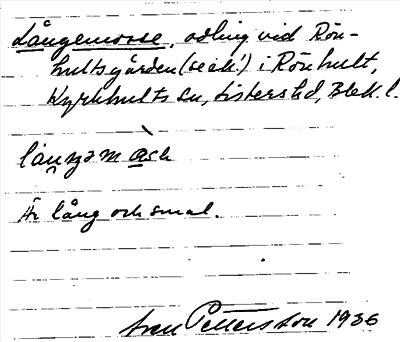 Långemosse, odling vid Rön-
hultsgården (se ek!) i Rönhult,
Kyrkhults sn, Listers hd, Blek. l.
Är lång och smal.
Sven Pettersson 1936